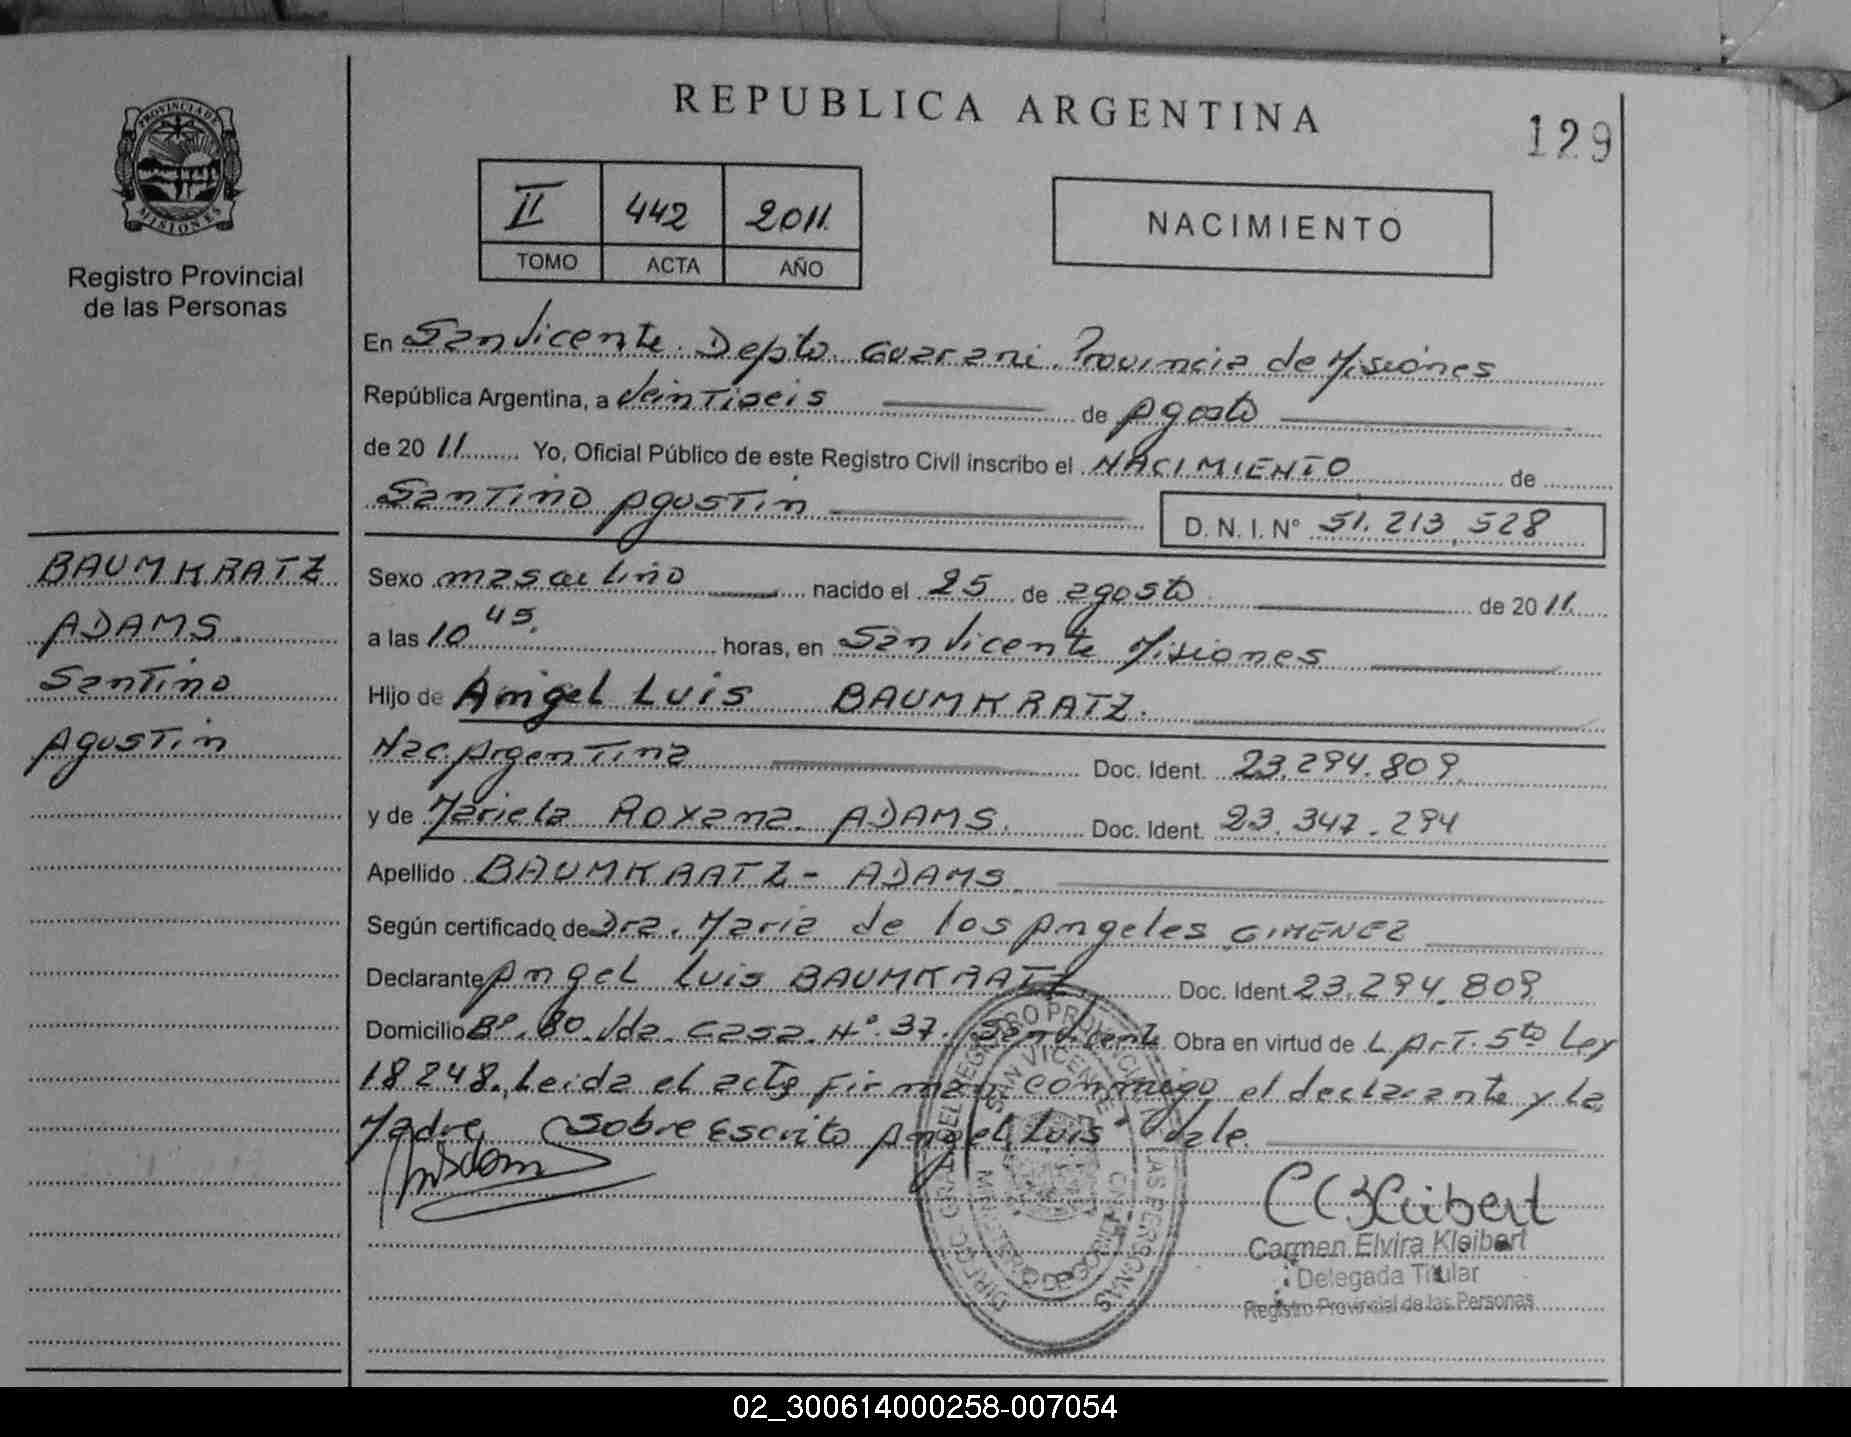 REPUBLICA ARGENTINA
129
PROVINCIA DE MISIONES
Registro Provincial
de las Personas
II 442 2011.
TOMO ACTA AÑO
NACIMIENTO
En San Vicente. Depto. Guarani. Provincia de Misiones
República Argentina, a Veintiseis de Agosto
de 2011 Yo, Oficial Público de este Registro Civil inscribo el NACIMIENTO de
Santino Agustin D. N. I. N° 51.213.528
BAUMKRATZ
ADAMS.
Santino
Agustin
Sexo masculino nacido el 25 de agosto de 2011.
a las 10 45. horas, en San Vicente Misiones
Hijo de Angel Luis BAUMKRATZ.
Nac. Argentina Doc. Ident. 23.294.809.
y de Mariela Roxana. ADAMS. Doc. Ident. 23.347.294
Apellido BAUMKRATZ - ADAMS.
Según certificado de Dra. Maria de los Angeles GIMENEZ
Declarante Angel Luis BAUMKRATZ Doc. Ident. 23.294.809
Domicilio Bº. 80. Vda. Casa. Nº. 37. San Vicente Obra en virtud de L Art. 5to Ley
18248. Leida el acta firman conmigo el declarante y la
Madre. Sobre Escrito Angel Luis" Vale.
SAN VICENTE
Carmen Elvira Kleibert
Delegada Titular
Registro Provincial de las Personas
02_300614000258-007054